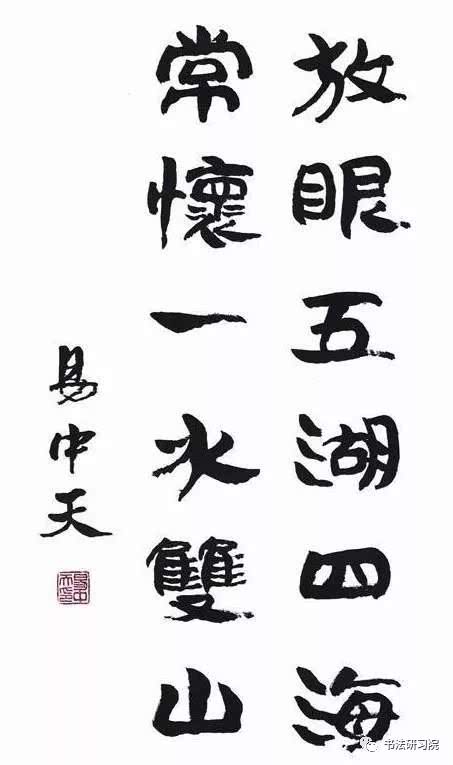 放眼五湖四海
常懷一水雙山
易中天
易中天印
书法研习院